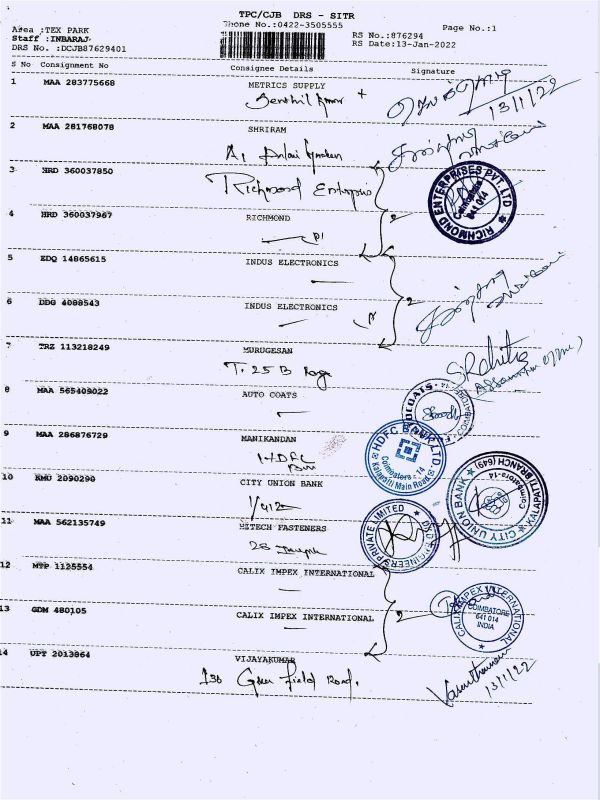 TPC/CJB DRS - SITR
Phone No.:0422-3505555
Page No.:1
Area :TEX PARK
Staff :INBARAJ
DRS No. :DCJB87629401
RS No.:876294
RS Date:13-Jan-2022
S No Consignment No Consignee Details Signature
1 MAA 283775668 METRICS SUPPLY
Senthil Kumar +
13/1/22
2 MAA 281768078 SHRIRAM
3 HRD 360037850
Richmond Enterprise
RICHMOND ENTERPRISES PVT. LTD
Coimbatore
641 014
4 HRD 360037967 RICHMOND
2
5 EDQ 14865615 INDUS ELECTRONICS
6 DDG 4088543 INDUS ELECTRONICS
2
7 TRZ 113218249 MURUGESAN
T. 25 B
8 MAA 565409022 AUTO COATS
9 MAA 286876729 MANIKANDAN
HDFC
HDFC BANK LTD
Coimbatore - 14
Kalapatti Main Road
10 KMU 2090290 CITY UNION BANK
CITY UNION BANK
KALAPATTI BRANCH (649)
Coimbatore-14
11 MAA 562135749 HITECH FASTENERS
ENGINEERS PRIVATE LIMITED
12 MTP 1125554 CALIX IMPEX INTERNATIONAL
13 GDM 480105 CALIX IMPEX INTERNATIONAL
2
CALIX IMPEX INTERNATIONAL
COIMBATORE
641 014
INDIA
14 UPT 2013864 VIJAYAKUMAR
136 Green Field Road.
13/1/22